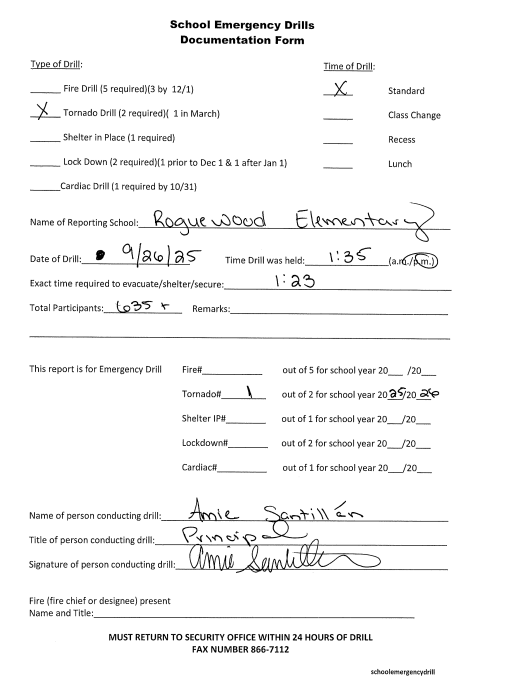 School Emergency Drills
Documentation Form
Type of Drill: Time of Drill:
______ Fire Drill (5 required)(3 by 12/1) X Standard
X Tornado Drill (2 required)( 1 in March) ______ Class Change
______ Shelter in Place (1 required) ______ Recess
______ Lock Down (2 required)(1 prior to Dec 1 & 1 after Jan 1) ______ Lunch
______Cardiac Drill (1 required by 10/31)
Name of Reporting School: Roguewood Elementary
Date of Drill: 9/26/25 Time Drill was held: 1:35 (a.m./p.m.)
Exact time required to evacuate/shelter/secure: 1:23
Total Participants: 635 + Remarks:
This report is for Emergency Drill Fire#__________ out of 5 for school year 20___ /20___
Tornado# 1 out of 2 for school year 20 25/20 26
Shelter IP#________ out of 1 for school year 20___/20___
Lockdown#________ out of 2 for school year 20___/20___
Cardiac#__________ out of 1 for school year 20___/20___
Name of person conducting drill: Amie Santillán
Title of person conducting drill: Principal
Signature of person conducting drill: Amie Santillan
Fire (fire chief or designee) present
Name and Title:
MUST RETURN TO SECURITY OFFICE WITHIN 24 HOURS OF DRILL
FAX NUMBER 866-7112
schoolemergencydrill